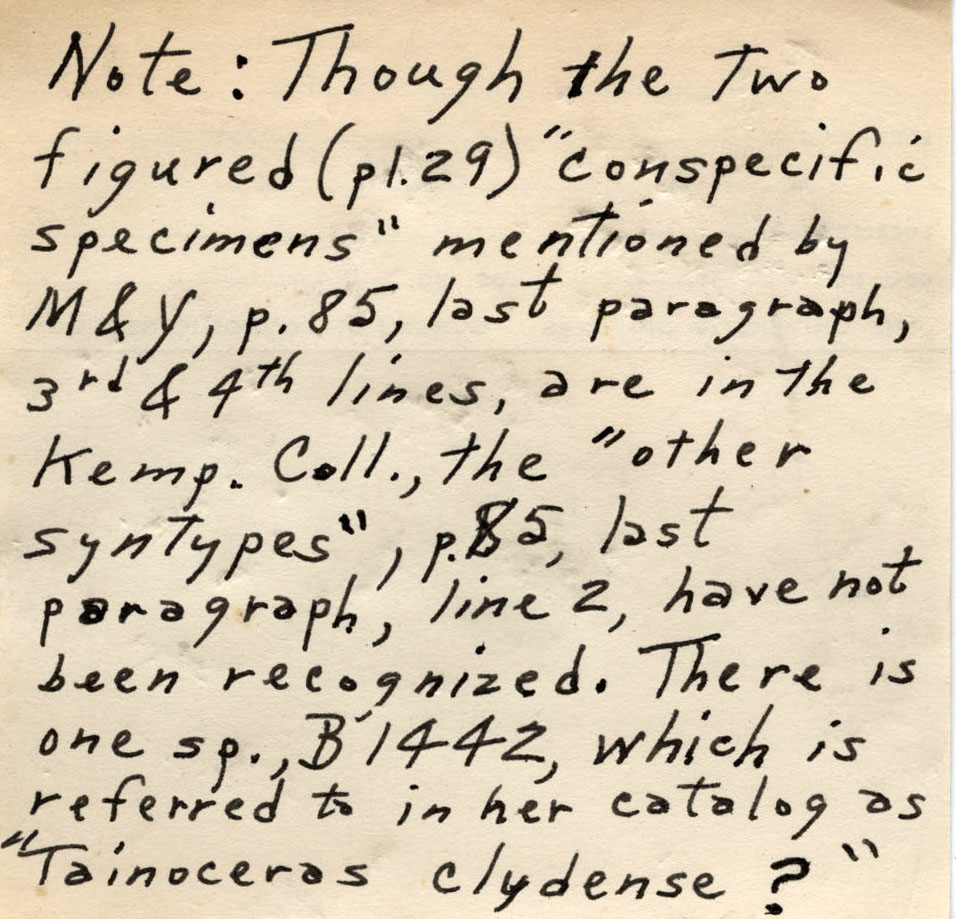 Note: Though the two
figured (pl. 29) "conspecific
specimens" mentioned by
M & Y, p. 85, last paragraph,
3rd & 4th lines, are in the
Kemp. Coll., the "other
syntypes", p. 85, last
paragraph, line 2, have not
been recognized. There is
one sp., B 1442, which is
referred to in her catalog as
"Tainoceras clydense ?"